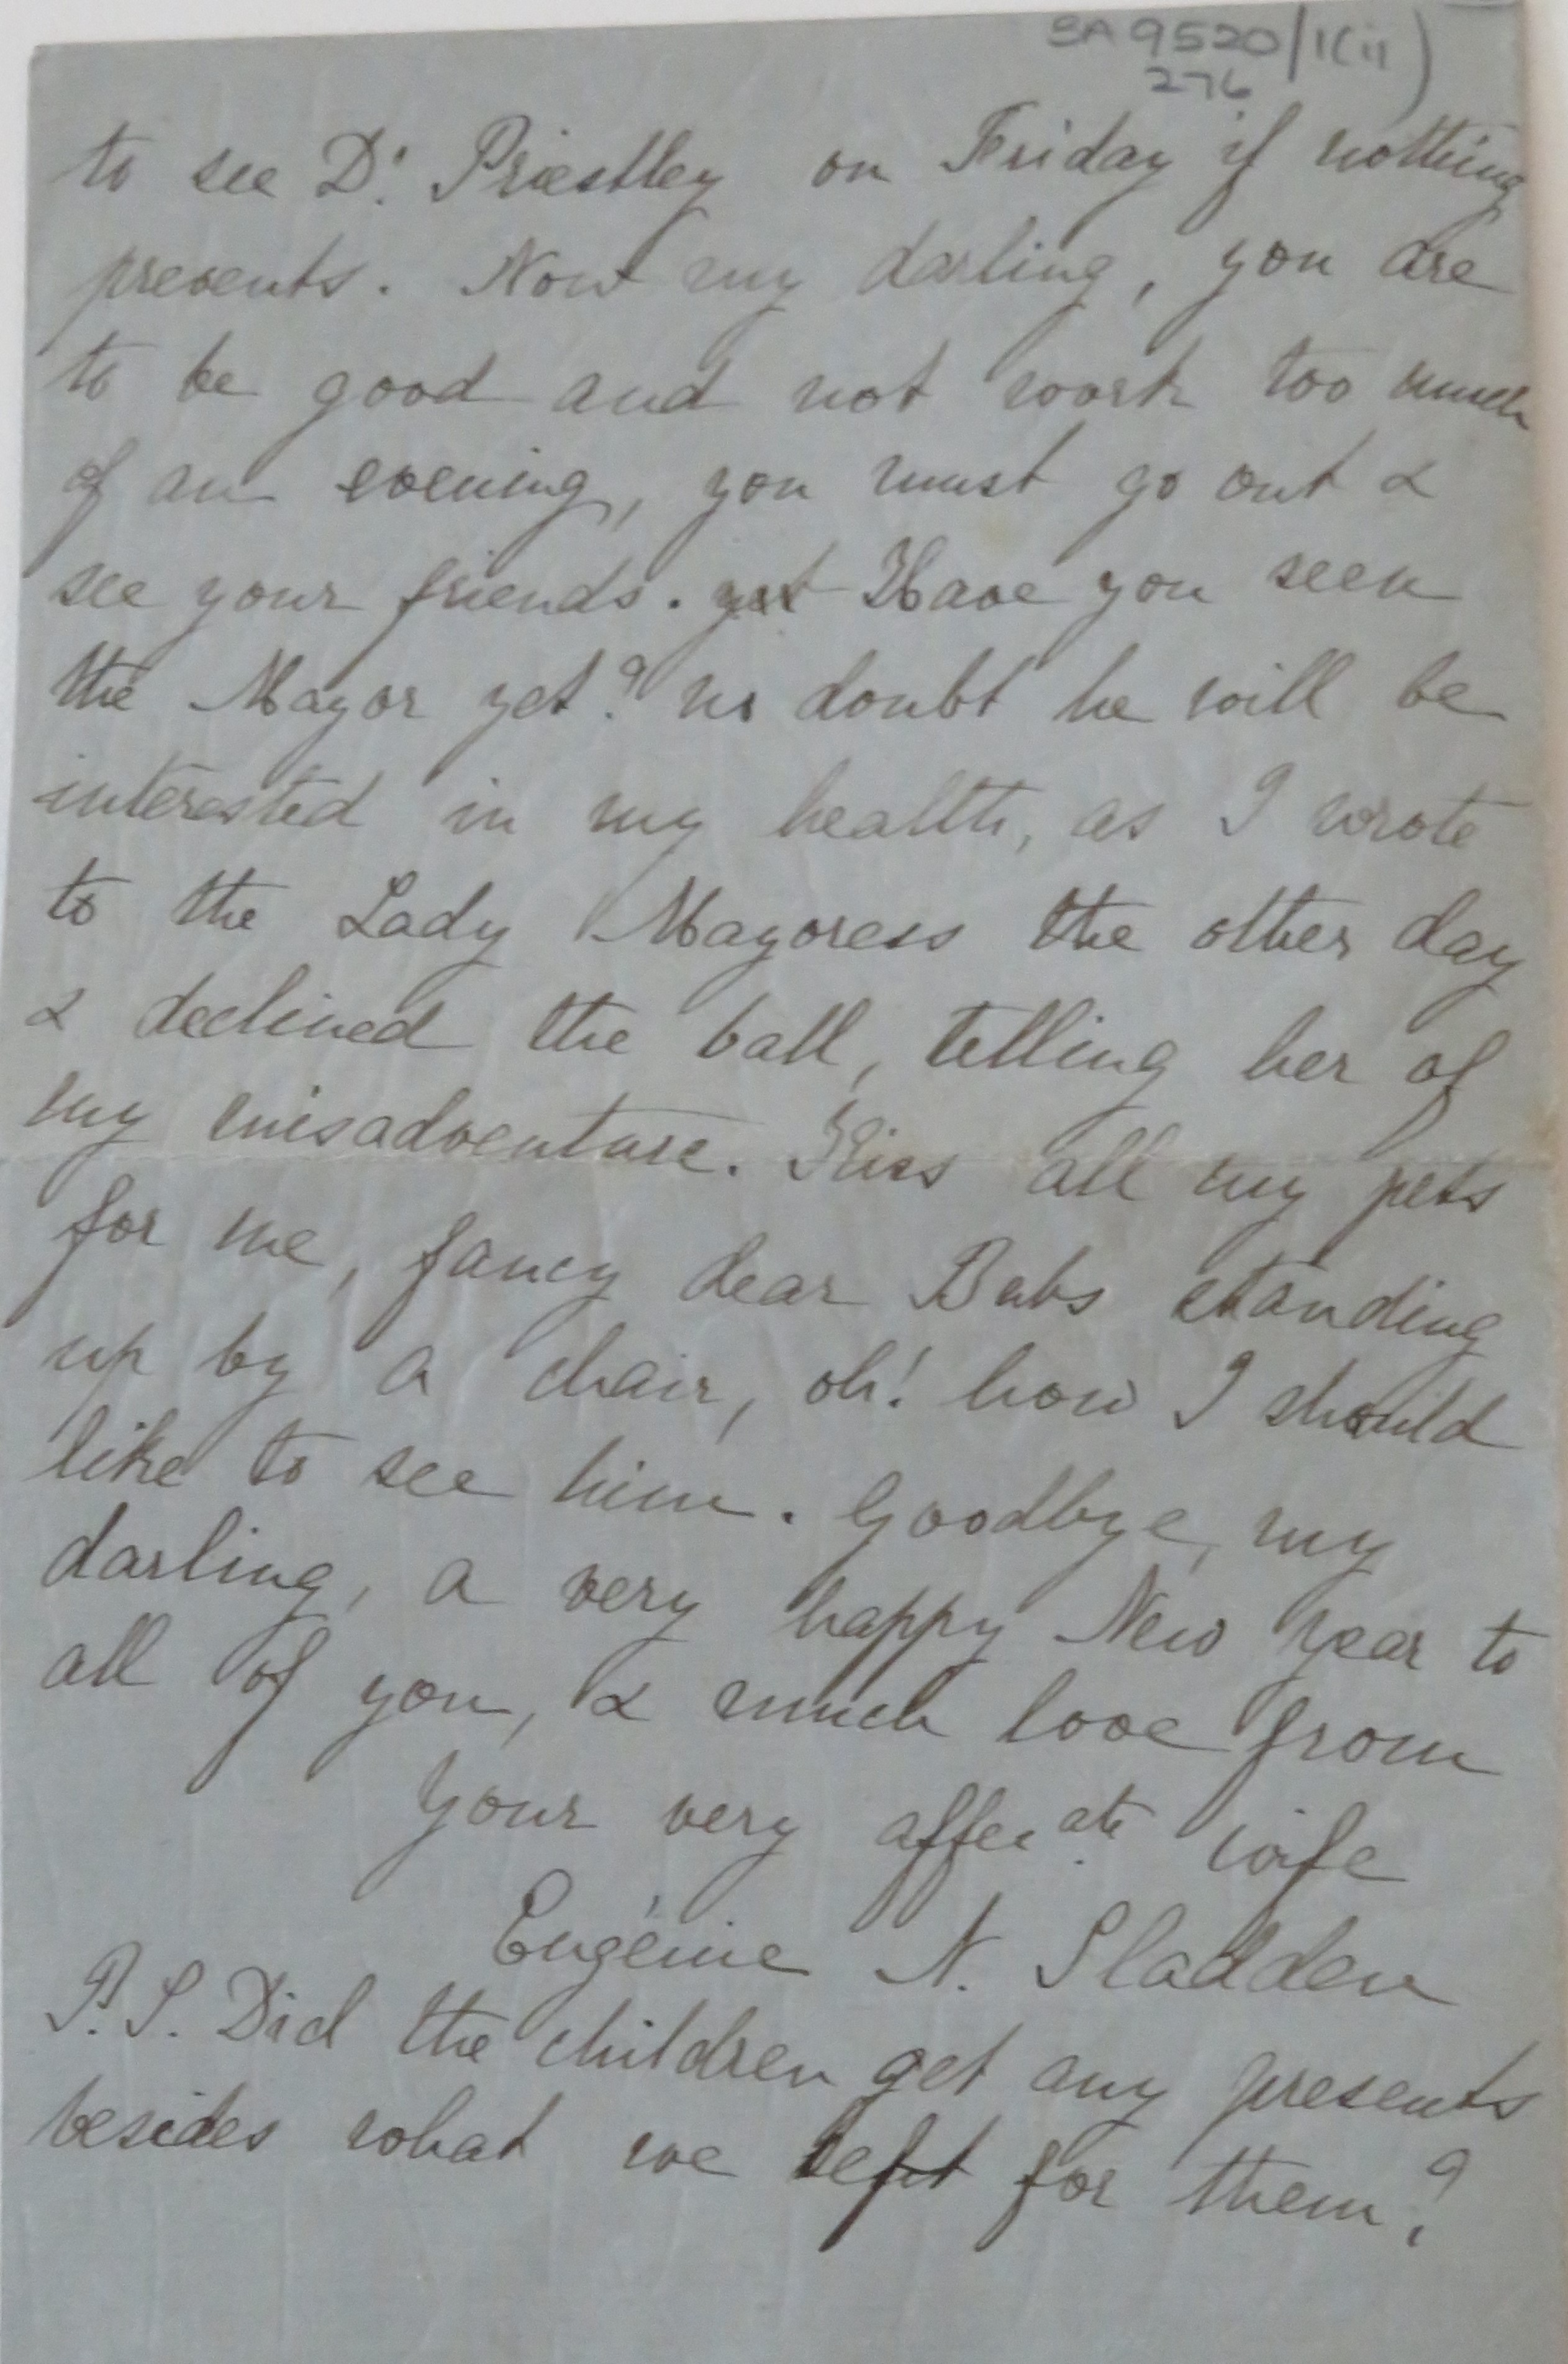 BA 9520/1(ii)
276
to see Dr. Priestley on Friday if nothing
prevents. Now my darling, you are
to be good and not work too much
of an evening, you must go out &
see your friends. yet Have you seen
the Mayor yet? no doubt he will be
interested in my health, as I wrote
to the Lady Mayoress the other day
& declined the ball, telling her of
my misadventure. Kiss all my pets
for me, fancy dear Babs standing
up by a chair, oh! how I should
like to see him. Goodbye, my
darling, a very happy New Year to
all of you, & much love from
Your very affecate wife
Eugénie N. Sladden
P.S. Did the children get any presents
besides what we left for them?